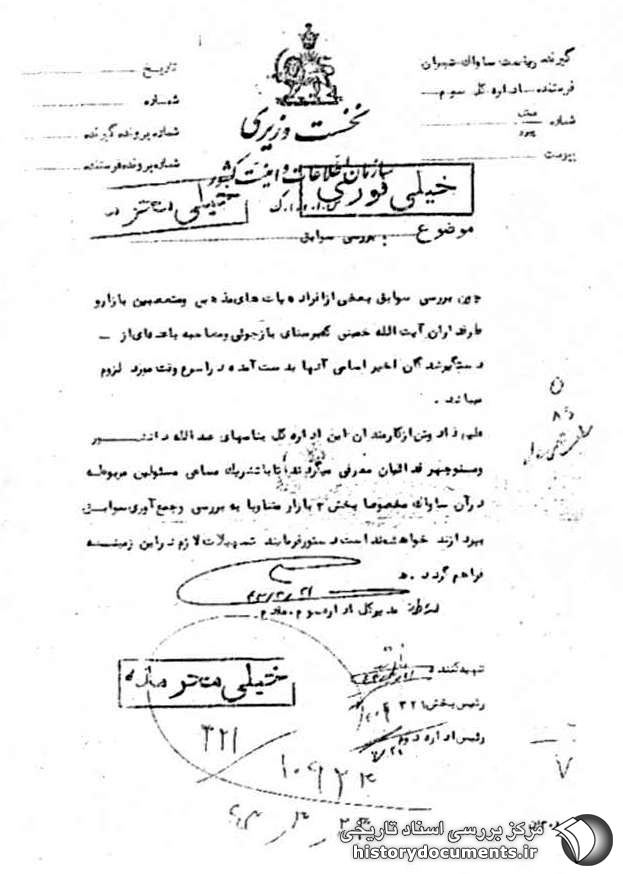 گیرنده ریاست ساواک تهران
فرستنده اداره کل سوم
شماره
پیوست
تاریخ
شماره
شماره پرونده گیرنده
شماره پرونده فرستنده
نخست وزیری
سازمان اطلاعات و امنیت کشور
س.ا.و.ا.ک
خیلی فوری
خیلی محرمانه
موضوع بررسی سوابق
چون بررسی سوابق بعضی از افراد هیات های مذهبی ومتعصبین بازار و
طرفداران آیت الله خمینی که برمبنای بازجوئی ومصاحبه با عده ای از
دستگیرشدگان اخیر اسامی آنها بدست آمده در اسرع وقت مورد لزوم
میباشد .
علیهذا دو تن از کارمندان این اداره کل بنامهای عبدالله دانشور
ومنوچهر فدائیان معرفی میگردند تا با تشریک مساعی مسئولین مربوطه
در آن ساواک مخصوصا بخش ۲ بازار متناوبا به بررسی وجمع آوری سوابق
بپردازند خواهشمند است دستورفرمایند تسهیلات لازم در این زمینه
فراهم گردد .
مدیرکل اداره سوم . مقدم
تهیه کننده
رئیس بخش ۳۲۱
رئیس اداره دوم
خیلی محرمانه
۳۲۱
۱۰۹۲۳
مرکز بررسی اسناد تاریخی
historydocuments.ir